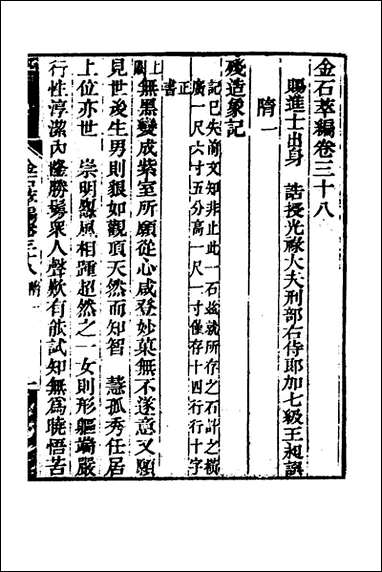 金石萃編卷三十八
賜進士出身 誥授光祿大夫刑部右侍郎加七級王昶譔
隋一
殘造象記
記已失前文知非止此一石茲就所存之石計之橫
廣一尺六寸五分高一尺一寸僅存十四行行十字
正書
上闕無黑變成紫室所願從心咸登妙菓無不遂意又願
見世後生男則貌如觀頂天然而知智 慧孤秀任居
上位亦世 崇明烈風相踵超然之一女則形軀端嚴
行性淳潔內逢勝鬘衆人聲歎有能試知無爲曉悟苦
金石萃編卷三十八 隋一
一